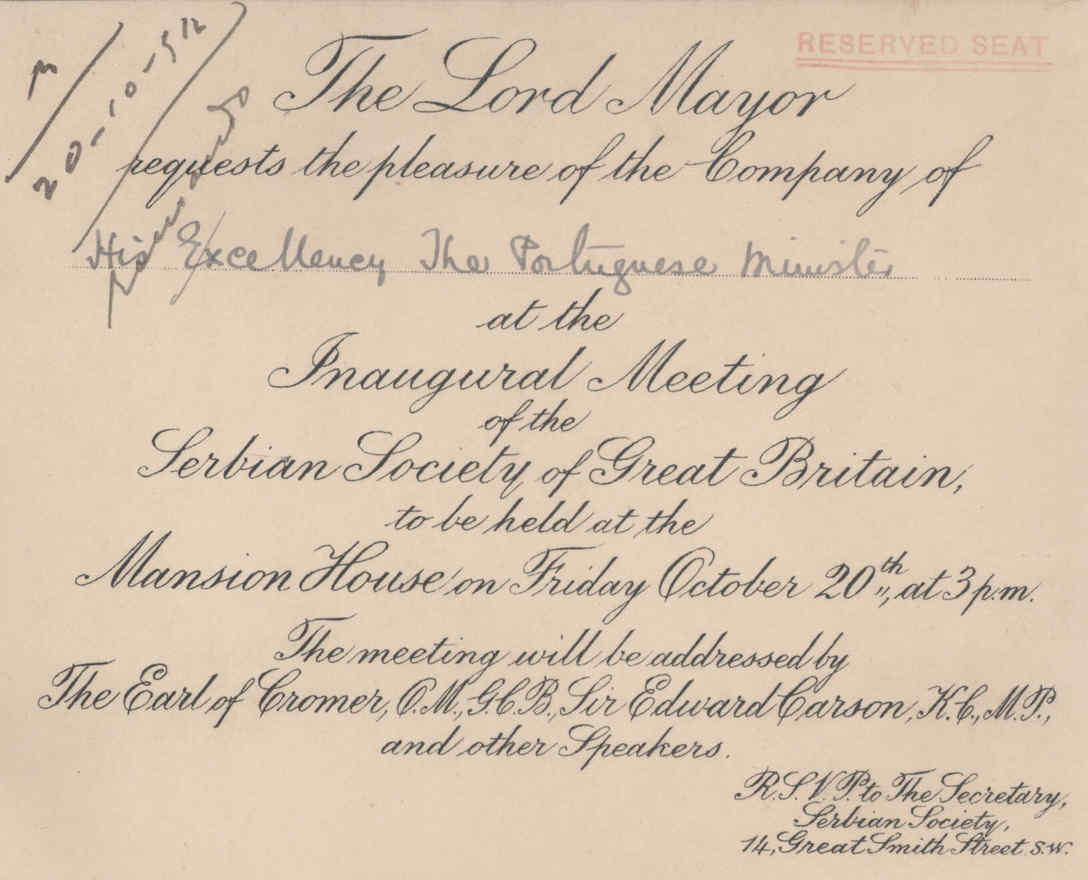 RESERVED SEAT
The Lord Mayor
requests the pleasure of the Company of
His Excellency The Portuguese Minister
at the
Inaugural Meeting
of the
Serbian Society of Great Britain,
to be held at the
Mansion House on Friday October 20th, at 3 p.m.
The meeting will be addressed by
The Earl of Cromer, O.M., G.C.B., Sir Edward Carson, K.C., M.P.,
and other Speakers.
R.S.V.P. to The Secretary,
Serbian Society,
14, Great Smith Street S.W.